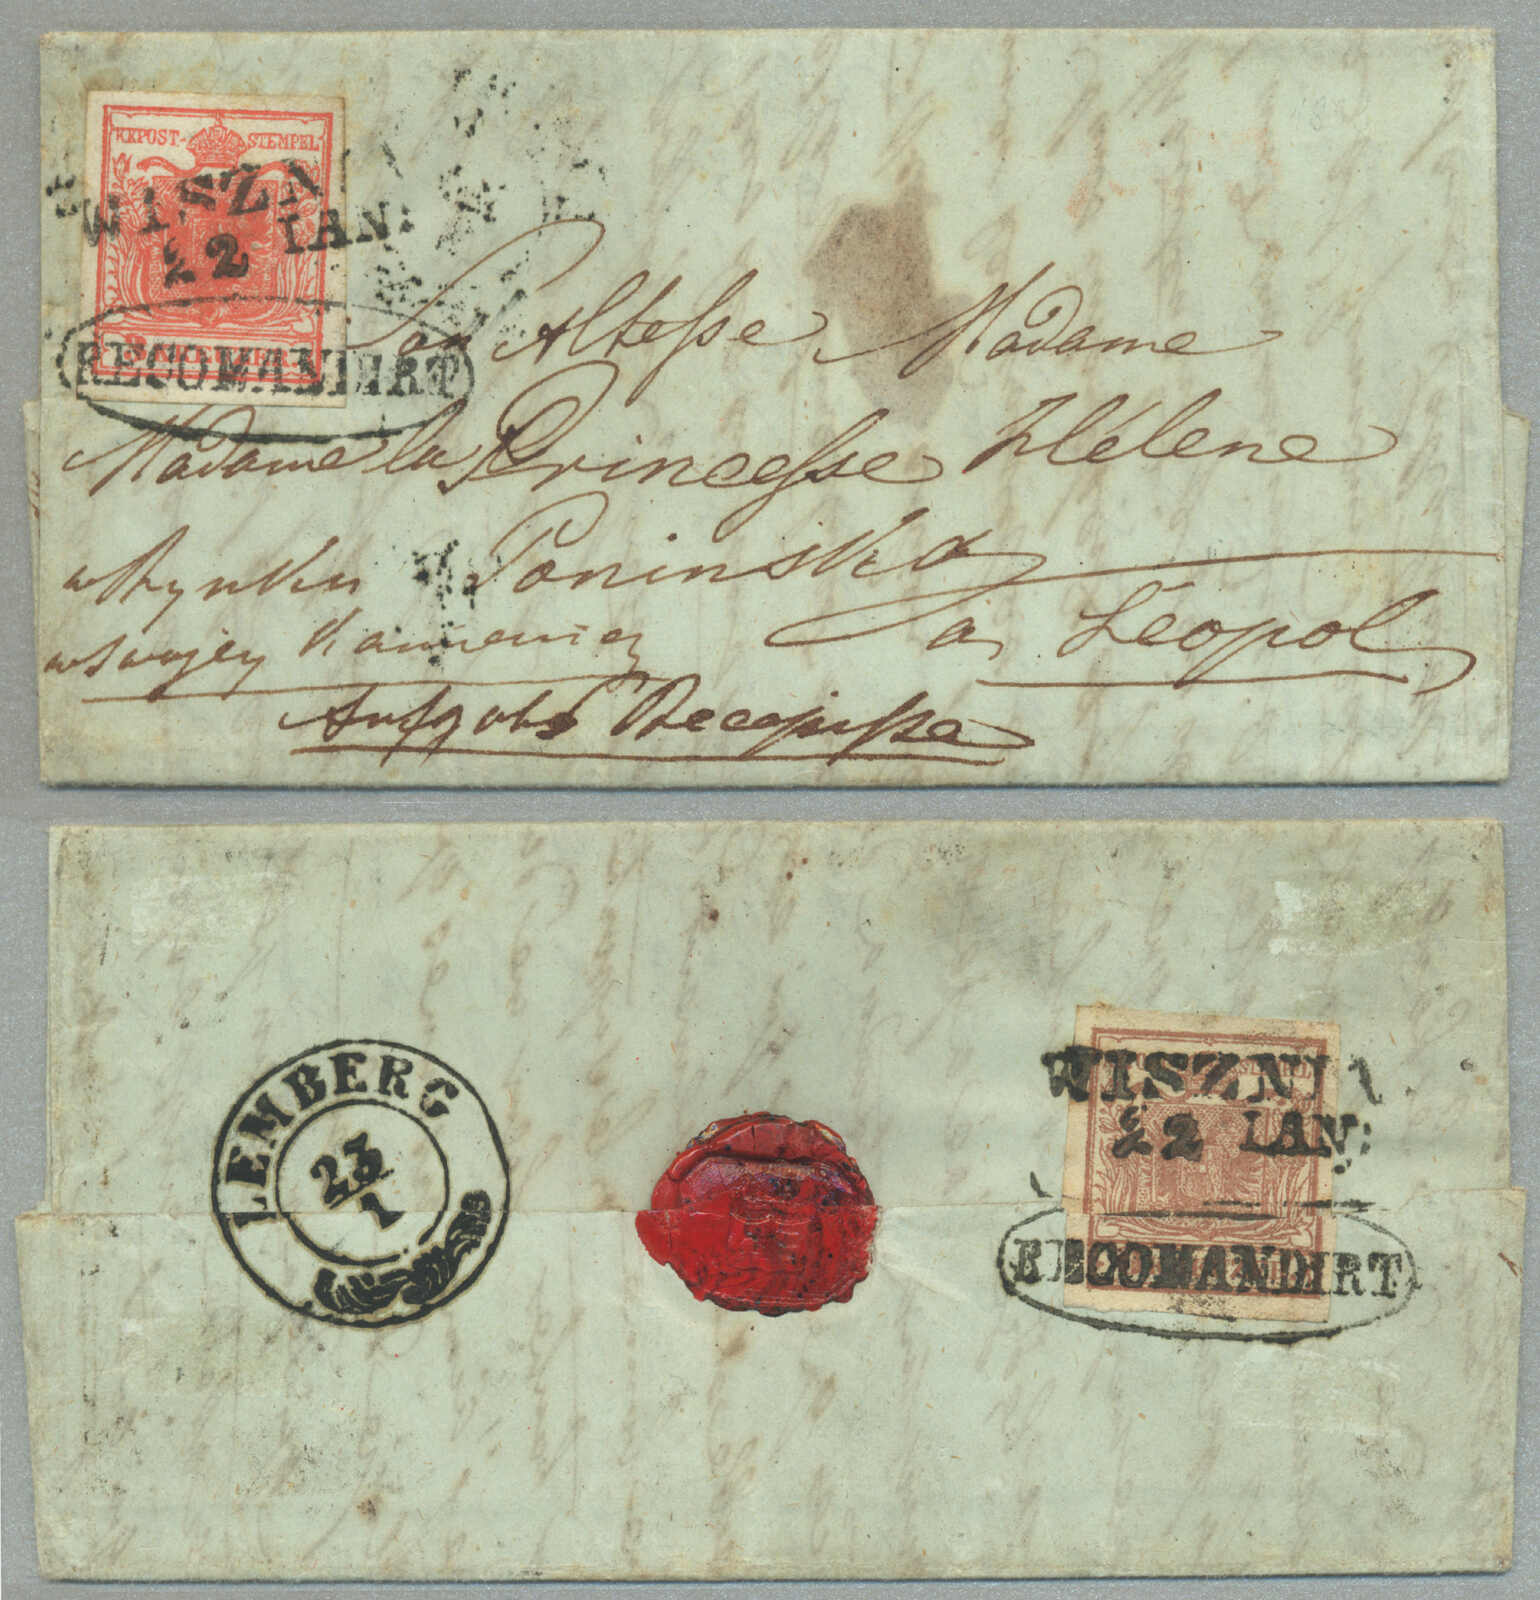 KKPOST-STEMPEL
WISZNIA
22 IAN:
RECOMANDIRT
Son Altesse Madame
Madame la Princesse Hélene
w Rynku Poninska
w swojey Kamienicy à Léopol
Recepisse
LEMBERG
23/1
WISZNIA
22 IAN:
RECOMANDIRT